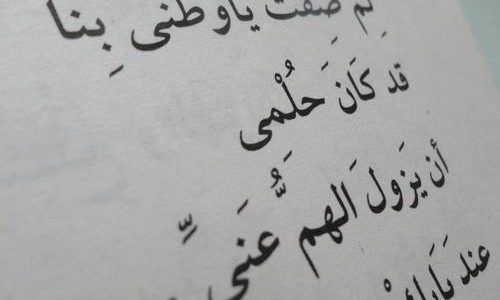 لم ضقت ياوطنى بِنا
قد كَانَ حَلُمْى
أن يَزول اَلهم عَنَى
عند بَابك